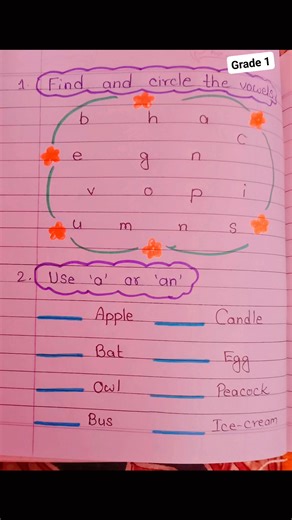 Grade 1
1. Find and circle the vowels.
b h a
c
e g n
v o p i
u m n s
2. Use 'a' or 'an'
____ Apple ____ Candle
____ Bat ____ Egg
____ Owl ____ Peacock
____ Bus ____ Ice-cream